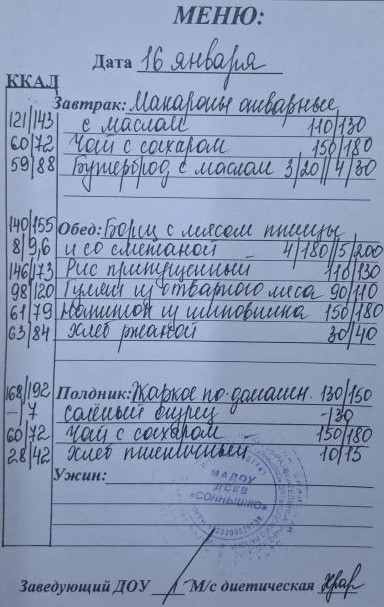 МЕНЮ:
Дата 16 января
ККАЛ
Завтрак: Макароны отварные
121/143 с маслом 110/130
60/72 Чай с сахаром 150/180
59/88 Бутерброд с маслом 3/20//4/30
140/155 Обед: Борщ с мясом птицы
8/9,6 и со сметаной 4/180//5/200
146/173 Рис припущенный 110/130
98/120 Гуляш из отварного мяса 90/110
61/79 Напиток из шиповника 150/180
63/84 Хлеб ржаной 30/40
168/192 Полдник: Жаркое по-домашн. 130/150
-/7 солёный огурец -/30
60/72 Чай с сахаром 150/180
28/42 Хлеб пшеничный 10/15
Ужин:
МАДОУ
ДСКВ
«СОЛНЫШКО»
Заведующий ДОУ М/с диетическая